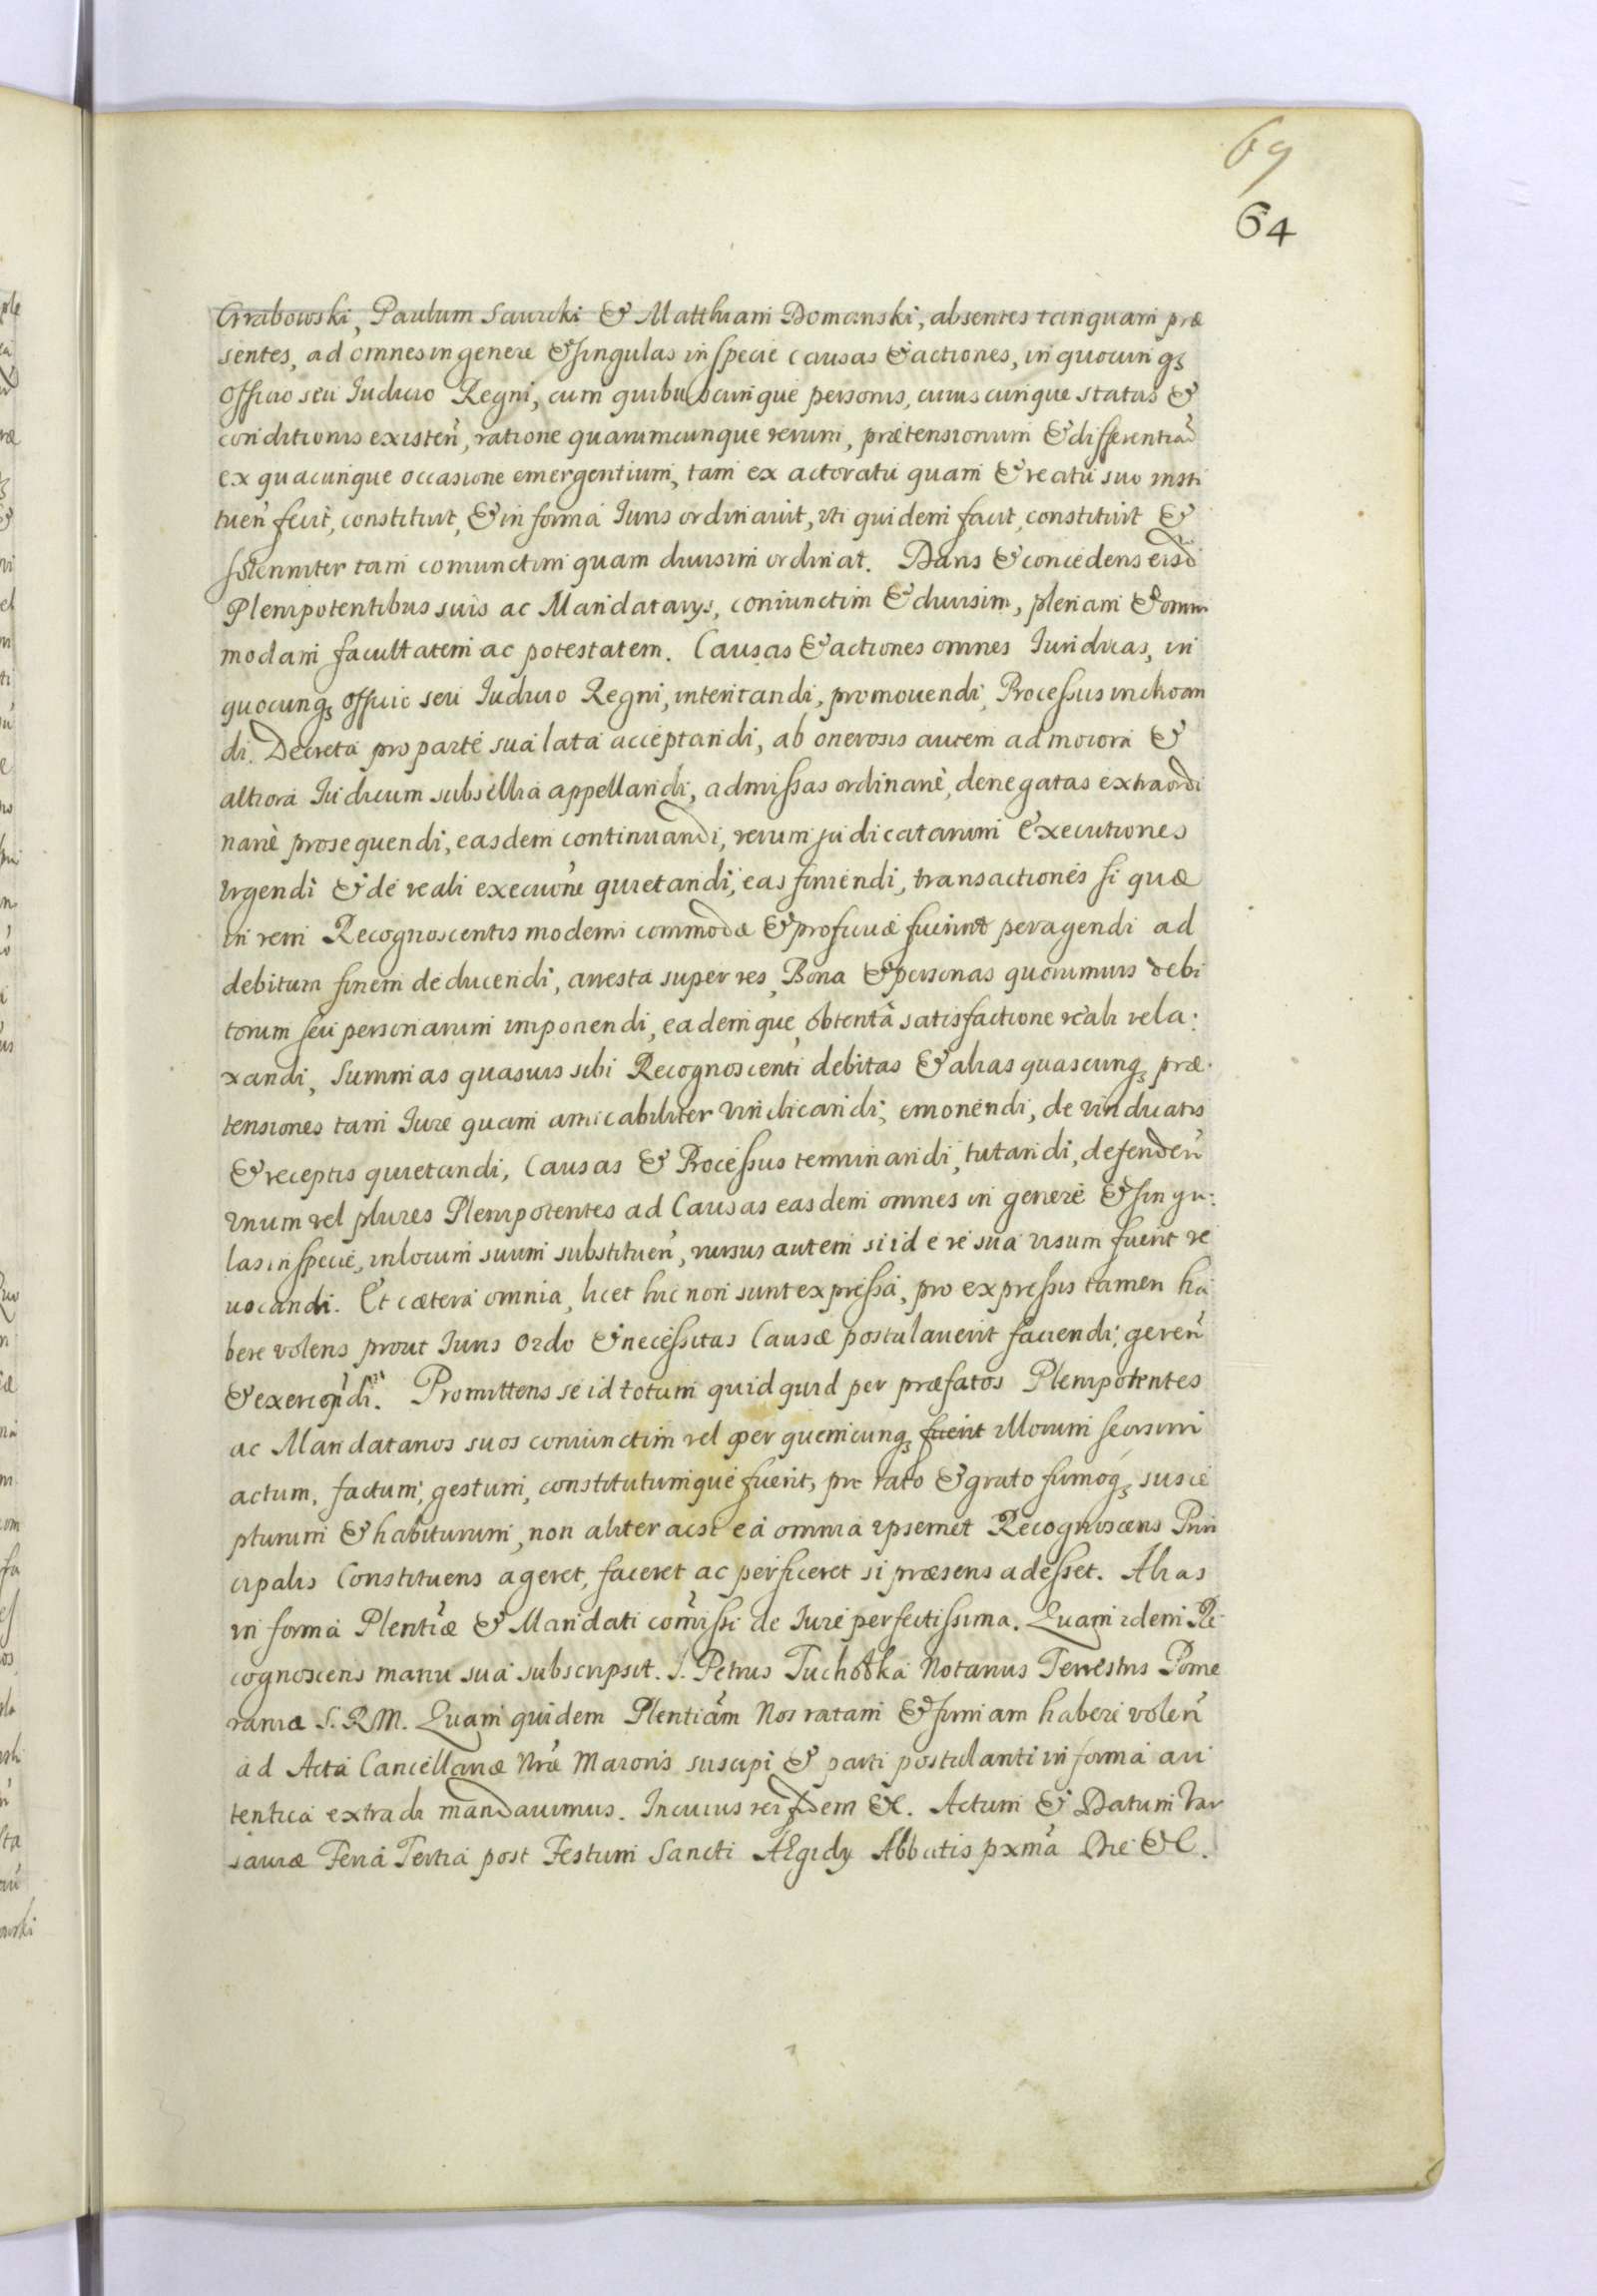 69
64
Grabowski, Paulum Sawicki & Matthiam Domanski, absentes tanquam præ
sentes, ad omnes in genere & singulas in specie Causas & actiones, in quocunq₃
Officio seu Iudicio Regni, cum quibuscunque personis, cuiuscunque status &
conditionis existeñ, ratione quarumcunque rerum, prætensionum & differentiar̃
ex quacunque occasione emergentium, tam ex actoratu quam & reatu suo insti
tueñ fecit, constituit, & in forma Iuris ordinavit, vti quidem facit, constituit &
solenniter tam coniunctim quam diuisim ordinat. Dans & concedens eisd̃
Plenipotentibus suis ac Mandatarys, coniunctim & diuisim, plenam & omni
modam facultatem ac potestatem. Causas & actiones omnes Iuridicas, in
quocunq₃ Officio seu Iudicio Regni, intentandi, promouendi, Processus inchoan
di. Decreta pro parte sua lata acceptandi, ab onerosis autem ad maiora &
altiora Iudicum subsellia appellandi, admissas ordinariè, denegatas extraordi
nariè prosequendi, easdem continuandi, rerum judicatarum Executiones
Vrgendi & de reali execuõne quietandi, eas finiendi, transactiones si quæ
in rem Recognoscentis moderni commodæ & proficuæ fuerint peragendi ad
debitum finem deducendi, arresta super res, Bona & personas quorumuis debi
torum seu personarum imponendi, eademque, obtentâ satisfactione reali rela:
xandi, Summas quasuis sibi Recognoscenti debitas & alias quascunq₃ præ.
tensiones tam Iure quam amicabiliter vindicandi, emonendi, de vindicatis
& receptis quietandi, Causas & Processus terminandi, tutandi, defendeñ
vnum vel plures Plenipotentes ad Causas easdem omnes in genere & singu:
las in specie, in locum suum substitueñ, rursus autem si id e re sua visum fuerit re
uocandi. Et cætera omnia, licet hic non sunt expressa, pro expressis tamen ha
bere volens prout Iuris Ordo & necessitas Causæ postulauerit faciendi, gereñ
& exercendi. Promittens se id totum quidquid per præfatos Plenipotentes
ac Mandatarios suos coniunctim vel per quemcunq₃ fuerit illorum seorsim
actum, factum, gestum, constitutumque fuerit, pro rato & grato firmoq₃ susce
pturum & habiturum, non aliter acsi ea omnia ipsemet Recognoscens Prin
cipalis Constituens ageret, faceret ac perficeret si præsens adesset. Alias
in forma Plentiæ & Mandati com̃issi de Iure perfectissima. Quam idem Re
cognoscens manu sua subscripsit. J. Petrus Tuchołka Notarius Terrestris Pome
raniæ S. R M. Quam quidem Plentiãm Nos ratam & firmam habere voleñ
ad Acta Cancellariæ Nræ Maioris suscipi & parti postulanti in forma au
tentica extradi mandauimus. In cuius rei fidem &c. Actum & Datum Var
sauiæ Feria Tertia post Festum Sancti Ægidy Abbatis pxma Die &c.